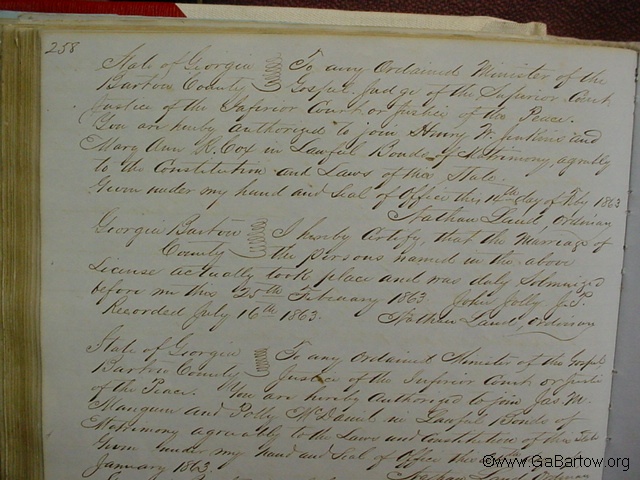 258
State of Georgia To any Ordained Minister of the
Bartow County Gospel Judge of the Superior Court
Justice of the Inferior Court or Justice of the Peace.
You are hereby authorized to join Henry W. Jenkins and
Mary Ann K. Cox in Lawful Bonds of Matrimony agreebly
to the Constitution and Laws of this State.
Given under my hand and Seal of Office this 14th day of Feby 1863
Nathan Land, Ordinary
Georgia Bartow I hereby Certify, that the Marriage of
County the persons named in the above
License actually took place and was duly Solmnized
before me this 25th February 1863 John Jolly J.P.
Recorded July 16th 1863. Nathan Land, Ordinary
State of Georgia To any Ordained Minister of the Gospel,
Bartow County Justice of the Inferior Court or Justice
of the Peace. You are hereby authorized to join Jas. M.
Mangum and Polly McDaniel in Lawful Bonds of
Matrimony agreeably to the Laws and Constitution of this State
Given under my hand and Seal of Office this day of
January 1863 Nathan Land Ordinary
©www.GaBartow.org